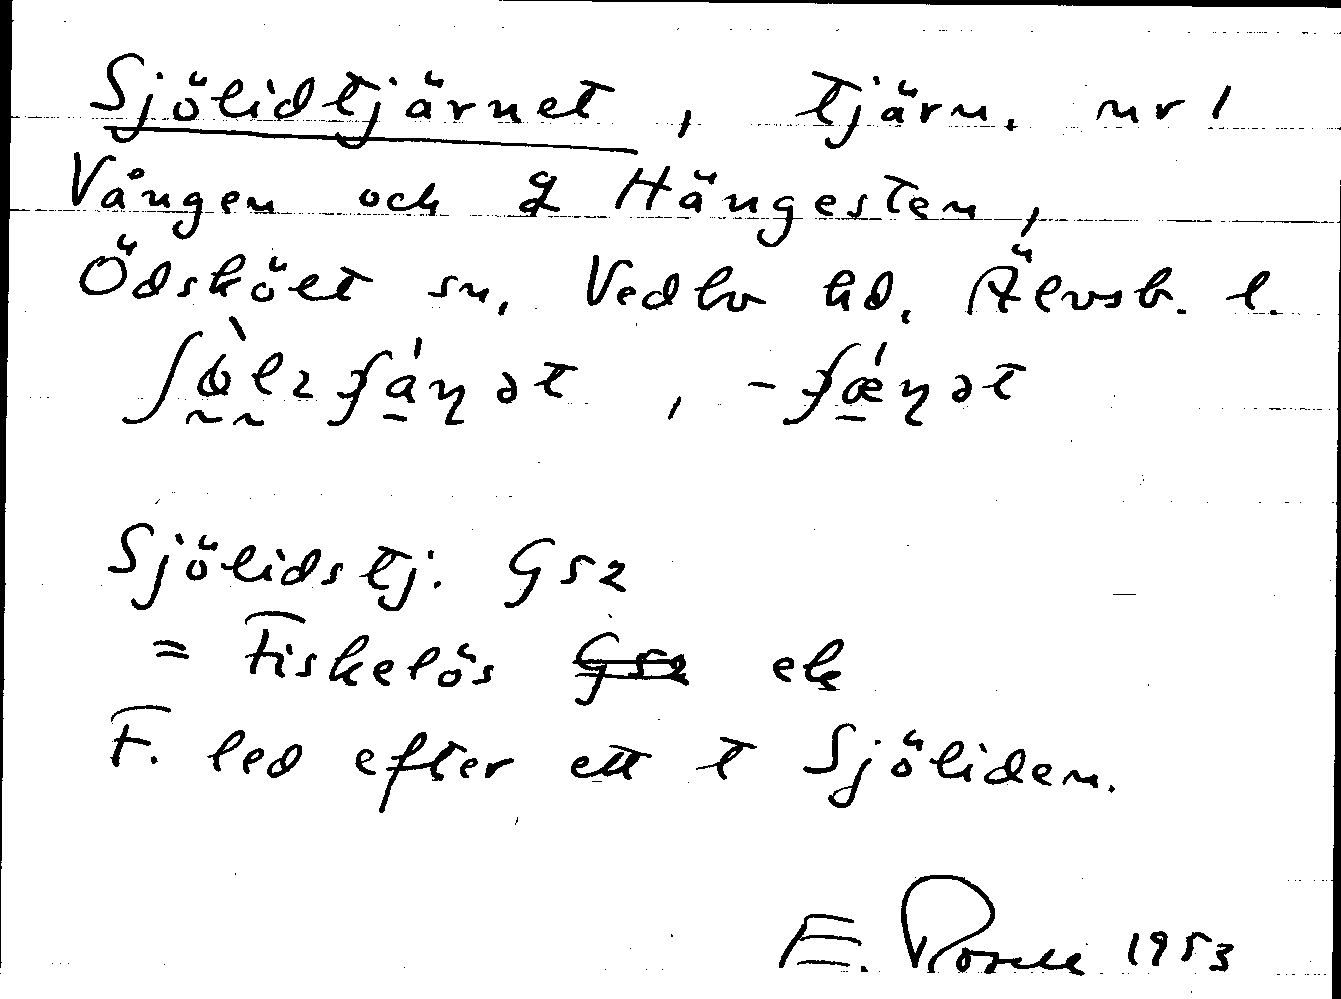 Sjölidtjärnet, tjärn. nr 1
Vången och 2 Hängesten,
Ödskölt sn, Vedbo hd, Älvsb. l.
Sjölidstj. GS2
= Fiskelös GS2 ek
F. led efter ett t Sjöliden.
E. Rosell 1953